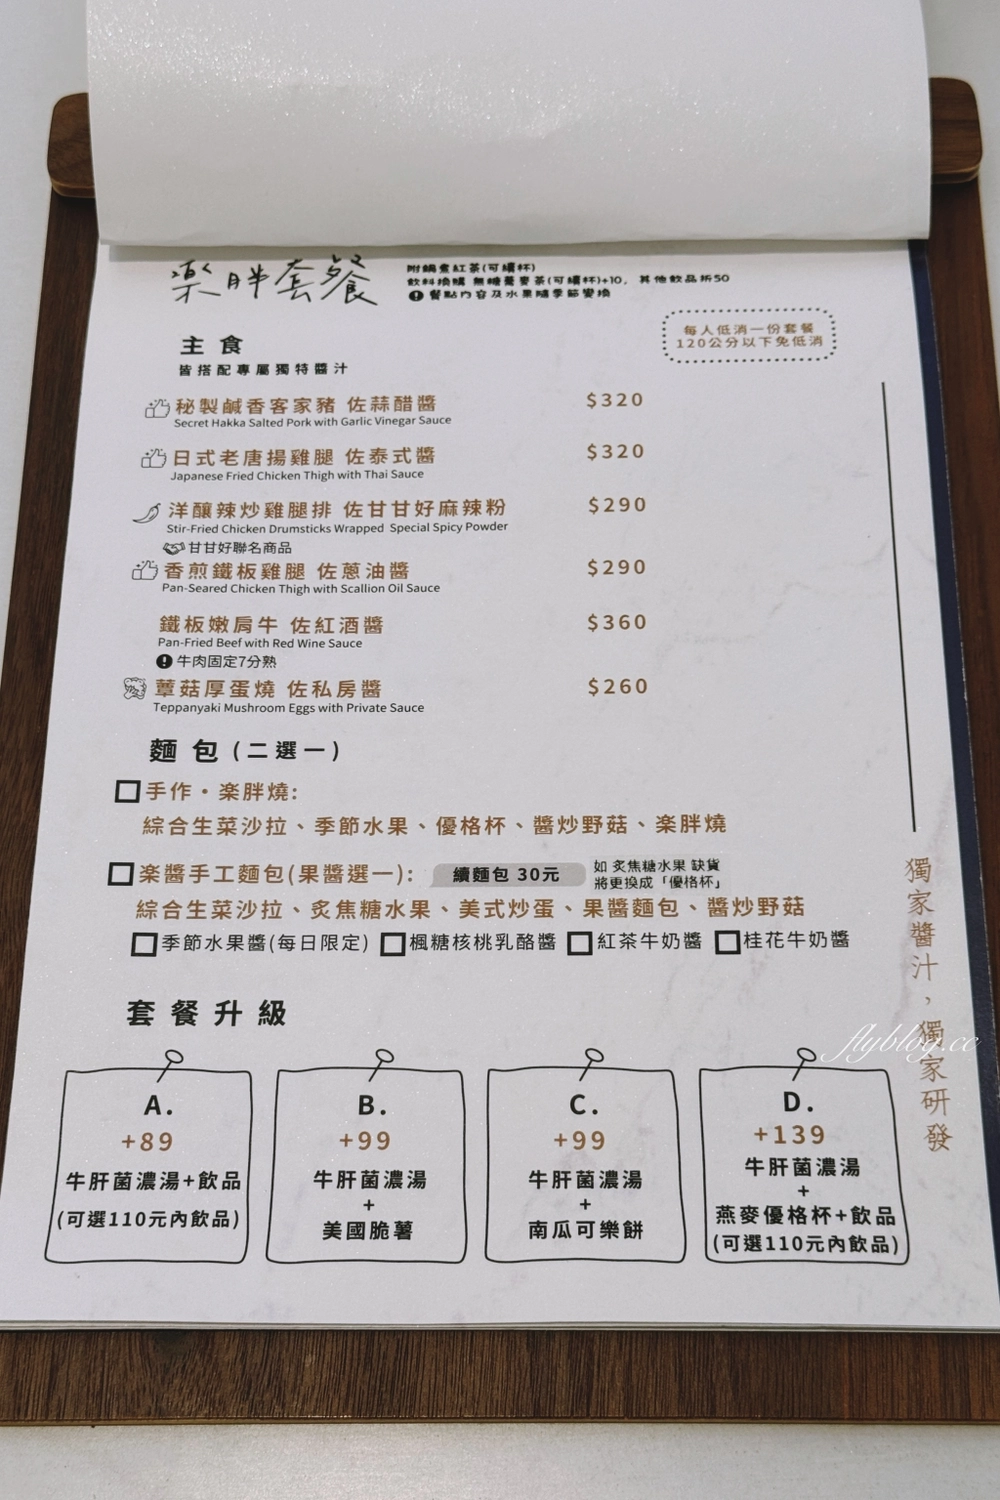 楽胖套餐
附鍋煮紅茶(可續杯)
飲料換購 無糖蕎麥茶(可續杯)+10, 其他飲品折50
餐點內容及水果隨季節變換
每人低消一份套餐
120公分以下免低消
主食
皆搭配專屬獨特醬汁
秘製鹹香客家豬 佐蒜醋醬 $320
Secret Hakka Salted Pork with Garlic Vinegar Sauce
日式老唐揚雞腿 佐泰式醬 $320
Japanese Fried Chicken Thigh with Thai Sauce
洋釀辣炒雞腿排 佐甘甘好麻辣粉 $290
Stir-Fried Chicken Drumsticks Wrapped Special Spicy Powder
甘甘好聯名商品
香煎鐵板雞腿 佐蔥油醬 $290
Pan-Seared Chicken Thigh with Scallion Oil Sauce
鐵板嫩肩牛 佐紅酒醬 $360
Pan-Fried Beef with Red Wine Sauce
牛肉固定7分熟
蕈菇厚蛋燒 佐私房醬 $260
Teppanyaki Mushroom Eggs with Private Sauce
麵包(二選一)
手作・楽胖燒:
綜合生菜沙拉、季節水果、優格杯、醬炒野菇、楽胖燒
楽醬手工麵包(果醬選一): 續麵包 30元
如 炙焦糖水果 缺貨
將更換成「優格杯」
綜合生菜沙拉、炙焦糖水果、美式炒蛋、果醬麵包、醬炒野菇
季節水果醬(每日限定) 楓糖核桃乳酪醬 紅茶牛奶醬 桂花牛奶醬
獨家醬汁，獨家研發
flyblog.cc
套餐升級
A.
+89
牛肝菌濃湯+飲品
(可選110元內飲品)
B.
+99
牛肝菌濃湯
+
美國脆薯
C.
+99
牛肝菌濃湯
+
南瓜可樂餅
D.
+139
牛肝菌濃湯
+
燕麥優格杯+飲品
(可選110元內飲品)